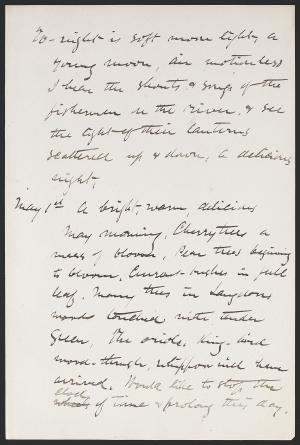 To-night is soft moon light, a
young moon, air motionless
I hear the shouts & songs of the
fishermen on the river, & see
the light of their lanterns
scattered up & down, a delicious
night,
May 1st A bright, warm, delicious
May morning, Cherry trees a
mass of bloom, Pear trees beginning
to bloom, Currant-bushes in full
leaf. Many trees in Langdons
woods touched with tender
green, The oriole, King-bird
wood-thrush, whippoorwill have
arrived. Would like to stop the
clock
of time & prolong this day.